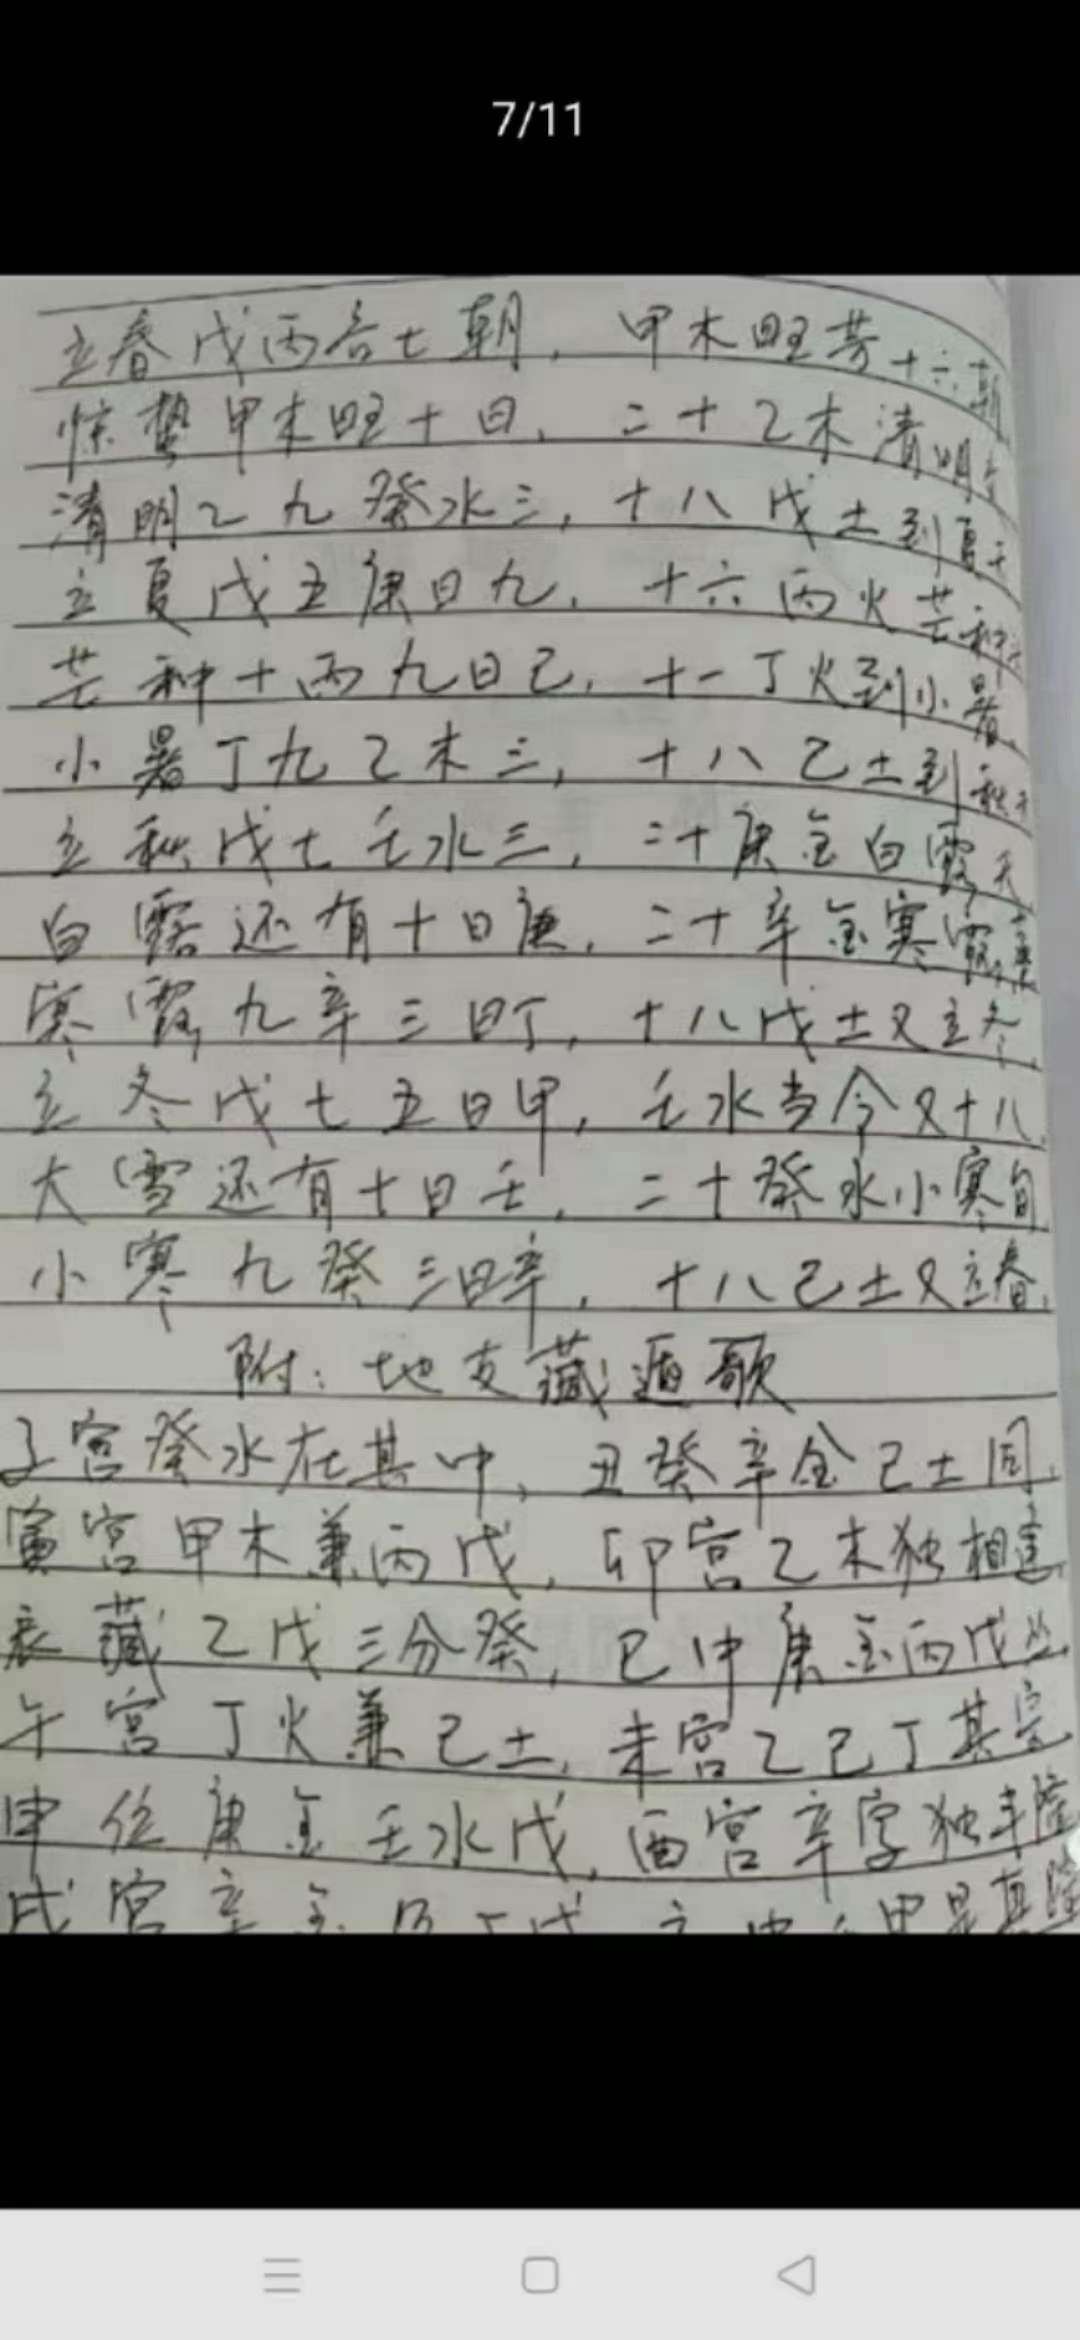 7/11
立春戊丙各七朝，甲木旺芳十六朝
惊蛰甲木旺十日，二十乙木清明
清明乙九癸水三，十八戊土到夏天
立夏戊五庚日九，十六丙火芒种
芒种十丙九日己，十一丁火到小暑。
小暑丁九乙木三，十八己土到秋天
立秋戊七壬水三，二十庚金白露天
白露还有十日庚，二十辛金寒露
寒露九辛三日丁，十八戊土又立冬。
立冬戊七五日甲，壬水当令又十八。
大雪还有十日壬，二十癸水小寒旬
小寒九癸三日辛，十八己土又立春。
附：地支藏遁歌
子宫癸水在其中，丑癸辛金己土同。
寅宫甲木兼丙戊，卯宫乙木独相逢
辰藏乙戊三分癸，巳中庚金丙戊丛
午宫丁火兼己土，未宫乙己丁其宗
申位庚金壬水戊，酉宫辛字独丰隆
戌宫辛金及丁戊，